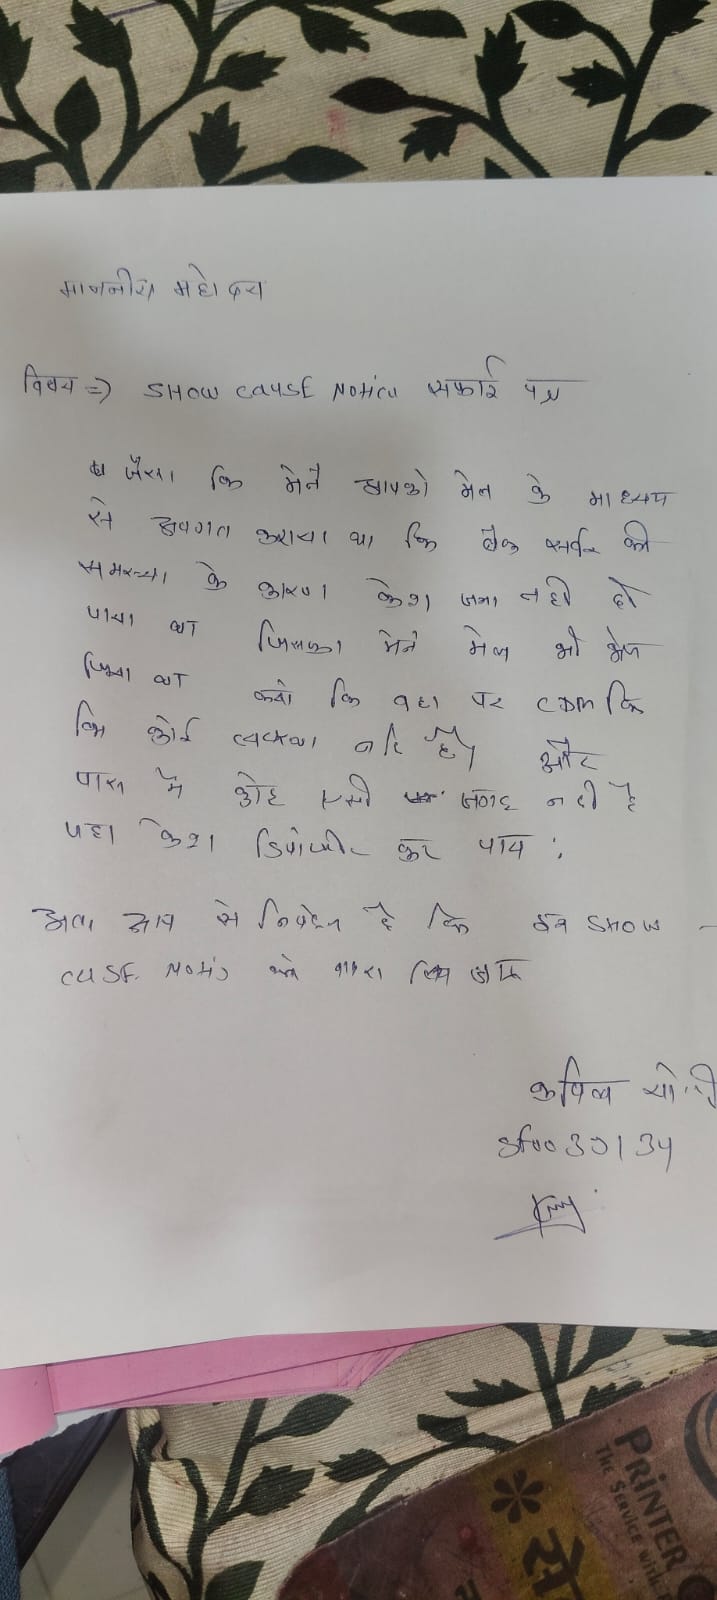 माननीय महोदय
विषय => SHOW CAUSE Notice सफाई पत्र
जैसा कि मेने आपको मेल के माध्यम
से अवगत कराया था कि बैंक सर्वर की
समस्या के कारण केश जमा नही हो
पाया था जिसका मेने मेल भी भेज
दिया था क्यो कि वहा पर CDM कि
कि कोई व्यवस्था नहि है। और
पास मे कोई एसी जगह नही है
जहा केश डिपोजीट कर पाय।
अतः आप से निवेदन है कि इस SHOW -
CAUSE Notis को वापस लिया जाऐ
कपिल
PRINTER
THE SERVICE with